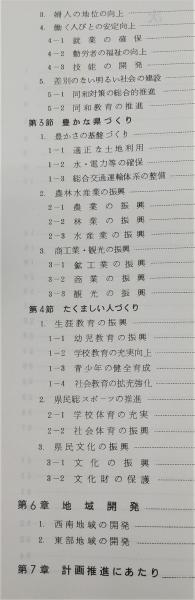 3. 婦人の地位の向上
4. 働く人びとの安定向上
4-1 就業の確保
4-2 勤労者の福祉の向上
4-3 技能の開発
5. 差別のない明るい社会の建設
5-1 同和対策の総合的推進
5-2 同和教育の推進
第3節 豊かな県づくり
1. 豊かさの基盤づくり
1-1 適正な土地利用
1-2 水・電力等の確保
1-3 総合交通運輸体系の整備
2. 農林水産業の振興
2-1 農業の振興
2-2 林業の振興
2-3 水産業の振興
3. 商工業・観光の振興
3-1 鉱工業の振興
3-2 商業の振興
3-3 観光の振興
第4節 たくましい人づくり
1. 生涯教育の振興
1-1 幼児教育の振興
1-2 学校教育の充実向上
1-3 青少年の健全育成
1-4 社会教育の拡充強化
2. 県民総スポーツの推進
2-1 学校体育の充実
2-2 社会体育の振興
3. 県民文化の振興
3-1 文化の振興
3-2 文化財の保護
第6章 地域開発
1. 西南地域の開発
2. 東部地域の開発
第7章 計画推進にあたり